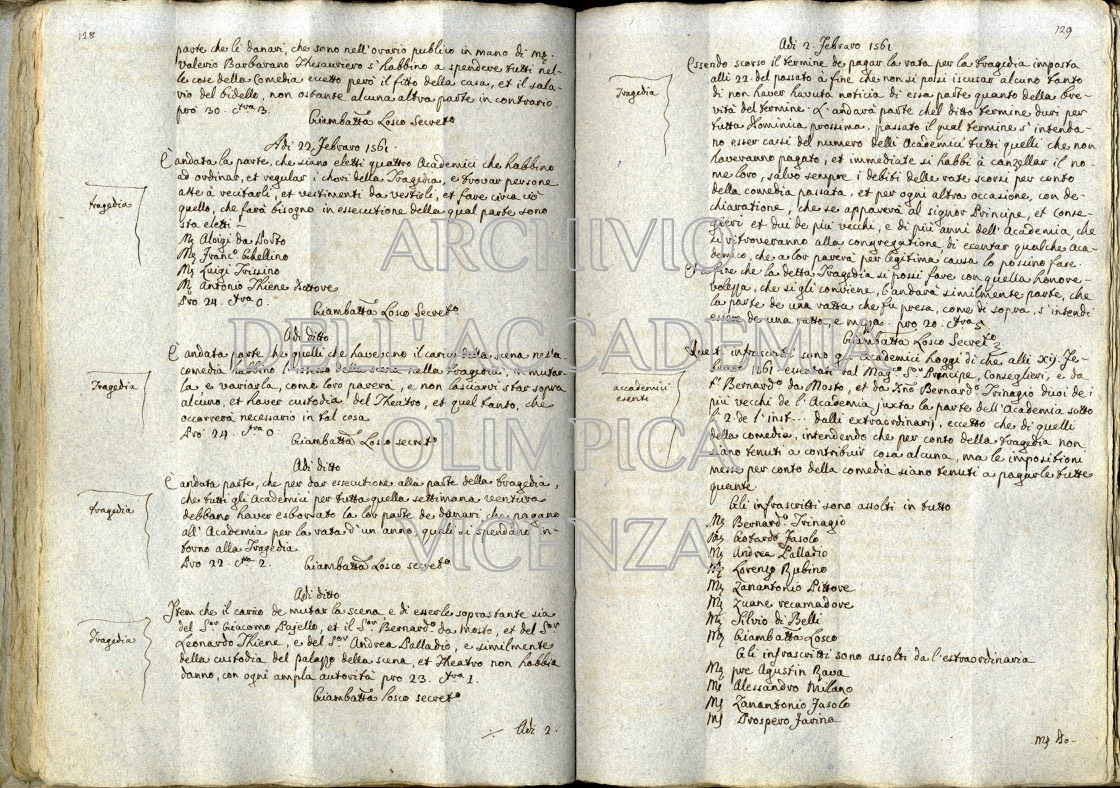 128
parte che li danari, che sono nell'erario publico in mano di m.
Valerio Barbarano Thesauriero s'habbino a spendere tutti nel-
le cose della Comedia ecetto però il fitto della casa, et il sala-
rio del bidello, non ostante alcuna altra parte in contrario.
pro 30. ctra 3.
Giambatta Losco Secret.o
Adi 22 Febraro 1561.
È andata la parte, che siano eletti quattro Academici che habbino
ad ordinar, et regular i chori della Tragedia, e trovar persone
atte à recitarli, et vestimenti da vestirli, et fare circa ciò
quello, che farà bisogno in essecutione della qual parte sono
sta eletti –
tragedia
M. Aloigi da Porto
M. Franc.o Ghellino
M. Luigi Trissino
M. Antonio Thiene Dottore
Pro 24. Ctra 0.
Giambatta Losco Secret.o
Adi ditto
È andata parte che quelli che haveano il carico della scena nella
comedia habbino l'istesso della scena nella Tragedia, in mutar-
la e variarla, come loro parerà, e non lasciarvi star sopra
alcuno, et haver custodia del Theatro, et quel tanto, che
occorrerà necessario in tal cosa
Tragedia
Pro 24. ctra 0.
Giambatta Losco secret.o
Adi ditto
È andata parte, che per dar essecutione alla parte della tragedia,
che tutti gli Academici per tutta quella settimana ventura
debbano haver esborsato la lor parte de danari che pagano
all'Academia per la rata d'un anno, quali si spendano in-
torno alla Tragedia
tragedia
Pro 22. ctra 2.
Giambatta Losco secret.o
Adi ditto
Item che il carico de mutar la scena e di esserle soprastante sia
del S.or Giacomo Pajello, et il S.or Bernard.o da Mosto, et del S.or
Leonardo Thiene, e del S.or Andrea Palladio, e similmente
della custodia del palazzo della scena, et Theatro non habbia
danno, con ogni ampla autorità pro 23. ctra 1.
Tragedia
Giambatta Losco secret.o
Adi 2.
129
Adi 2. Febraro 1561
Essendo scorso il termine de pagar la rata per la tragedia imposta
alli 22. del passato à fine che non si possi iscusar alcuno tanto
di non haver havuta noticia di essa parte quanto della bre-
vità del termine. L'andarà parte chel ditto termine duri per
tutta Dominica prossima, passato il qual termine s'intenda-
no esser cassi del numero delli Academici tutti quelli che non
haveranno pagato, et immediate si habbi à canzellar il no-
me loro, salvo sempre i debiti delle rate scorsi per conto
della comedia passata, et per ogni altra occasione, con de-
chiaratione, che se apparerà al signor Principe, et conse-
glieri et dui de piu vecchi, e di più anni dell'Academia, che
si ritroveranno alla congregatione, di esentar qualche Aca-
demico, che a lor parerà per legitima causa lo possino fare.
Et à fine che la detta Tragedia si possi fare con quella honore-
volezza, che si gli conviene, l'andarà similmente parte, che
la parte de una ratta che fu presa, come di sopra, s'intendi
essere de una ratto, e mezza. pro 20. ctra 5
Tragedia
Giambatta Losco Secret.o
Questi infrascritti sono gli Academici hoggi di che alli xij. Fe-
braro 1561 esentati dal Mag.co S.or Principe, Conseglieri, e da
S.r Bernard.o da Mosto, et da Bernard.o Trinagio duoi de i
più vecchi de l'Academia juxta la parte dell'Academia sotto
li 2 de l'inst... dalli extraordinarij, eccetto che di quelli
della comedia, intendendo che per conto della tragedia non
siano tenuti a contribuir cosa alcuna, ma le impositioni
messe per conto della comedia siano tenuti a pagarle tutte
quante
accademici
esenti
Gli infrascritti sono assolti in tutto
M. Bernard.o Trinagio
M. Fasolo
M. Andrea Palladio
M. Lorenzo Rubino
M. Zanantonio Pittore
M. Zuane recamadore
M. Silvio di Belli
M. Giambatta Losco
Gli infrascritti sono assolti da l'estraordinaria
M. pre Agustin Rava
M. Alessandro Milano
M. Zanantonio Fasolo
M. Prospero Farina
ARCHIVIO
DELL'ACCADEMIA
OLIMPICA
VICENZA